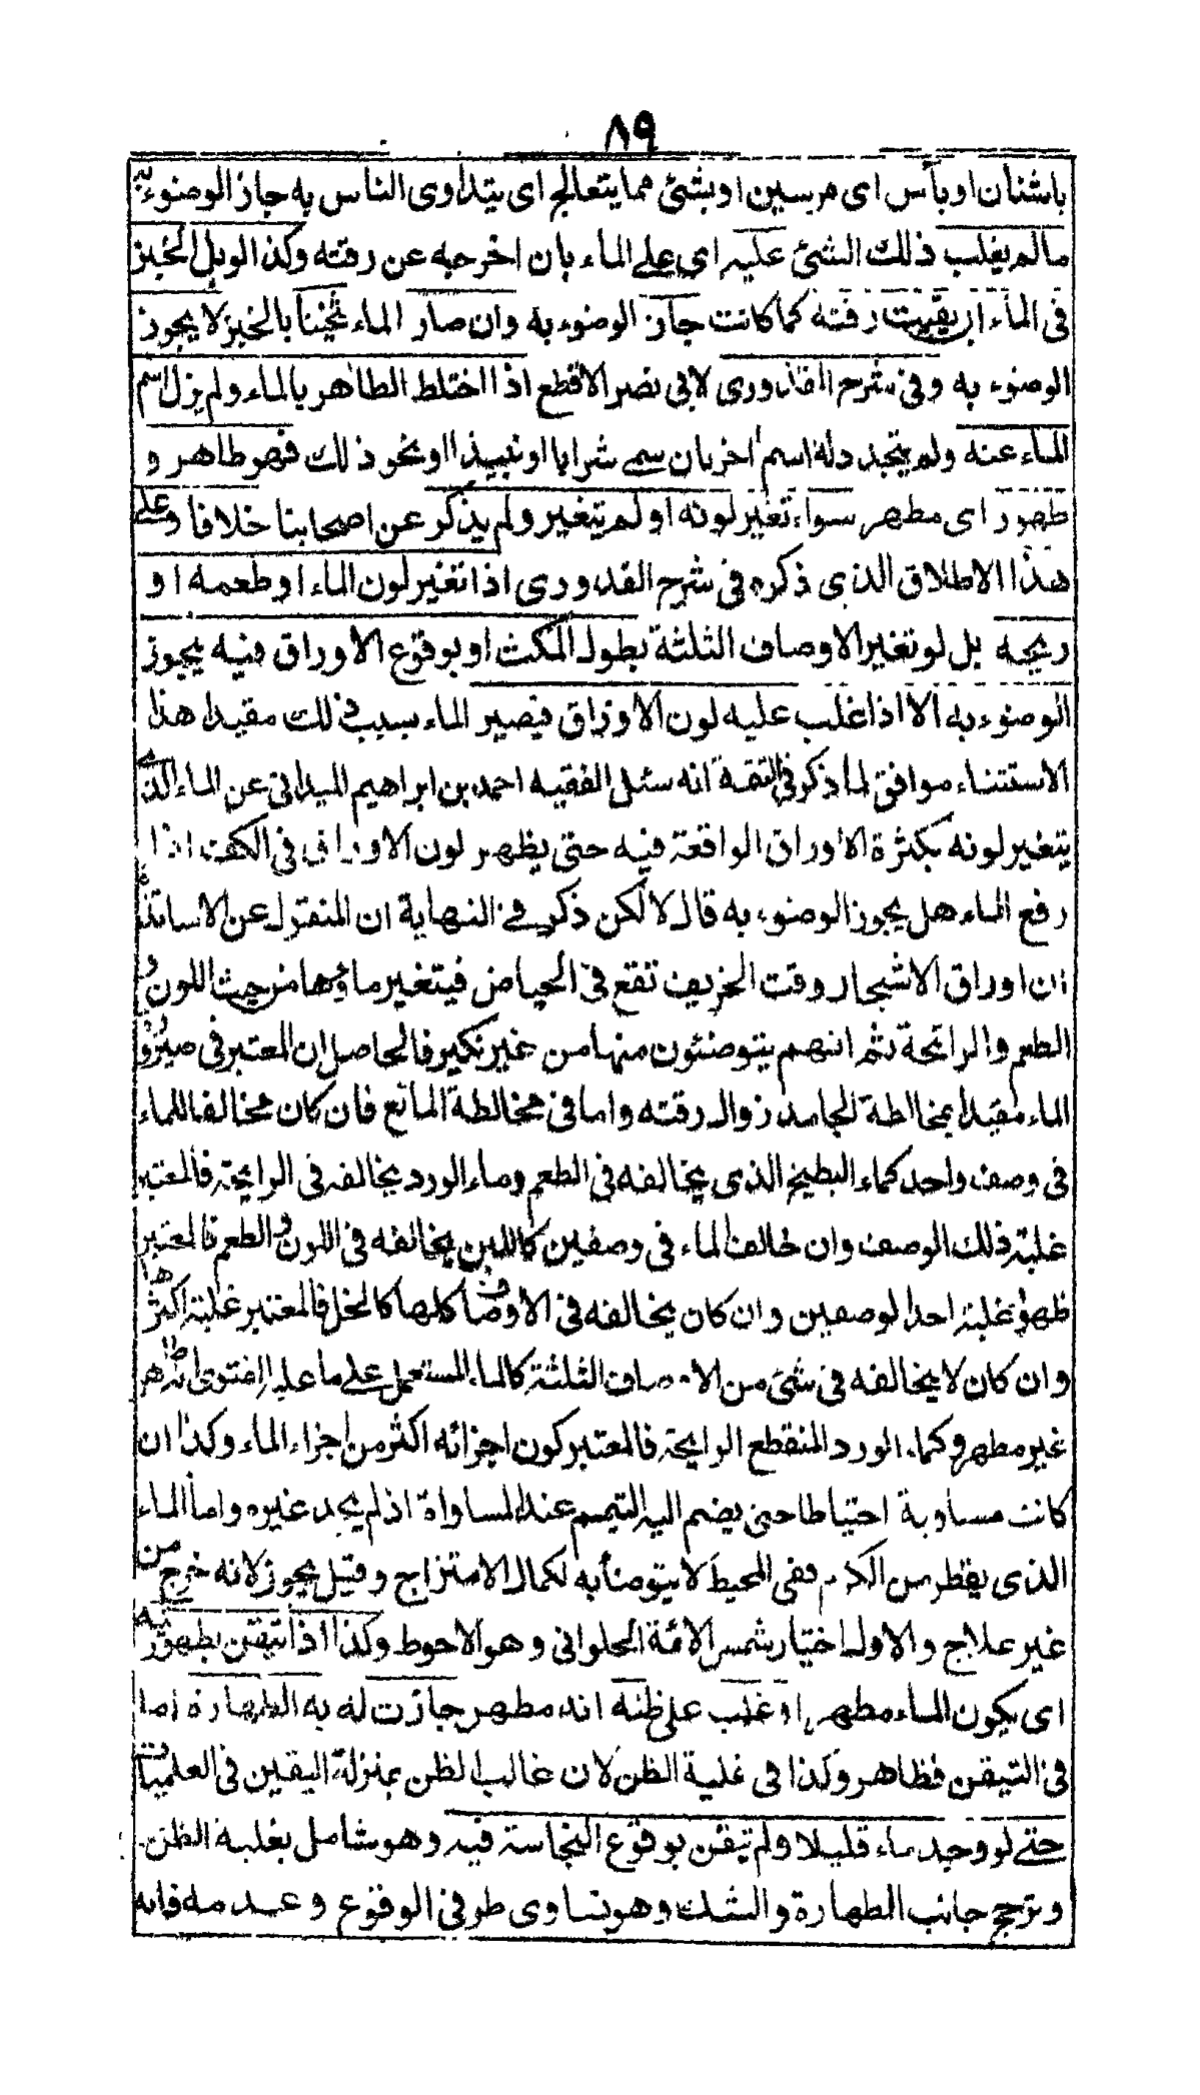 ٨٩
باشنان او بآس اى مرسين او بشئ مما يتعالج اى يتداوى الناس به جاز الوضوء به
مالم يغلب ذلك الشئ عليه اى على الماء بان اخرجه عن رقته وكذا لو بل الخبز
فى الماء ان بقيت رقته كما كانت جاز الوضوء به وان صار الماء ثخينا بالخبز لا يجوز
الوضوء به وفى شرح القدورى لابى نصر الاقطع اذا اختلط الطاهر بالماء ولم يزل اسم
الماء عنه ولم يتجدد له اسم اخر بان سمى شرابا او نبيذا او نحو ذلك فهو طاهر و
طهور اى مطهر سواء تغير لونه او لم يتغير ولم يذكر عن اصحابنا خلافا وعلى
هذا الاطلاق الذى ذكره فى شرح القدورى اذا تغير لون الماء او طعمه او
ريحه بل لو تغير الاوصاف الثلثة بطول المكث او بوقوع الاوراق فيه يجوز
الوضوء به الا اذا غلب عليه لون الاوراق فيصير الماء بسبب ذلك مقيدا هذا
الاستثناء موافق لما ذكر فى التتمة انه سئل الفقيه احمد بن ابراهيم الميدانى عن الماء الذى
يتغير لونه بكثرة الاوراق الواقعة فيه حتى يظهر لون الاوراق فى الكف اذا
رفع الماء هل يجوز الوضوء به قال لا لكن ذكر فى النهاية ان المنقول عن الاساتذة
ان اوراق الاشجار وقت الخريف تقع فى الحياض فيتغير ماؤها من حيث اللون و
الطعم والرائحة ثم انهم يتوضئون منها من غير نكير فالحاصل ان المعتبر فى صيرورة
الماء مقيدا بمخالطة الجامد زوال رقته واما فى مخالطة المائع فان كان مخالفا للماء
فى وصف واحد كماء البطيخ الذى يخالفه فى الطعم وماء الورد يخالفه فى الرايحة فالمعتبر
غلبة ذلك الوصف وان خالف الماء فى وصفين كاللبن يخالفه فى اللون والطعم فالمعتبر
ظهور غلبة احد الوصفين وان كان يخالفه فى الاوصاف كلها كالخل فالمعتبر غلبة اكثرها
وان كان لا يخالفه فى شئ من الاوصاف الثلثة كالماء المستعمل على ما عليه الفتوى انه طاهر
غير مطهر وكماء الورد المنقطع الرايحة فالمعتبر كون اجزائه اكثر من اجزاء الماء وكذا ان
كانت مساوية احتياطا حتى يضم اليه التيمم عند المساواة اذ لم يجد غيره واما الماء
الذى يقطر من الكرم ففى المحيط لا يتوضأ به لكمال الامتزاج وقيل يجوز لانه خرج من
غير علاج والاول اختيار شمس الائمة الحلوانى وهو الاحوط وكذا اذا تيقن بطهوريته
اى يكون الماء مطهرا او غلب على ظنه انه مطهر جازت له به الطهارة اما
فى التيقن فظاهر وكذا فى غلبة الظن لان غالب الظن بمنزلة اليقين فى العلميات
حتى لو وجد ماء قليلا ولم تيقن بوقوع النجاسة فيه وهو شامل بغلبة الظن
وترجح جانب الطهارة والشك وهو تساوى طرفى الوقوع وعدمه فانه